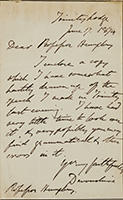 Trinity Lodge
June 17. 1874
Dear Professor Humphry,
I enclose a copy
which I have somewhat
hastily drawn up of the
speech I made at Trinity
last evening. I have had
very little time to look over
it, & very possibly you may
find grammatical
errors in it.
Yours faithfully
Devonshire
Professor Humphry.